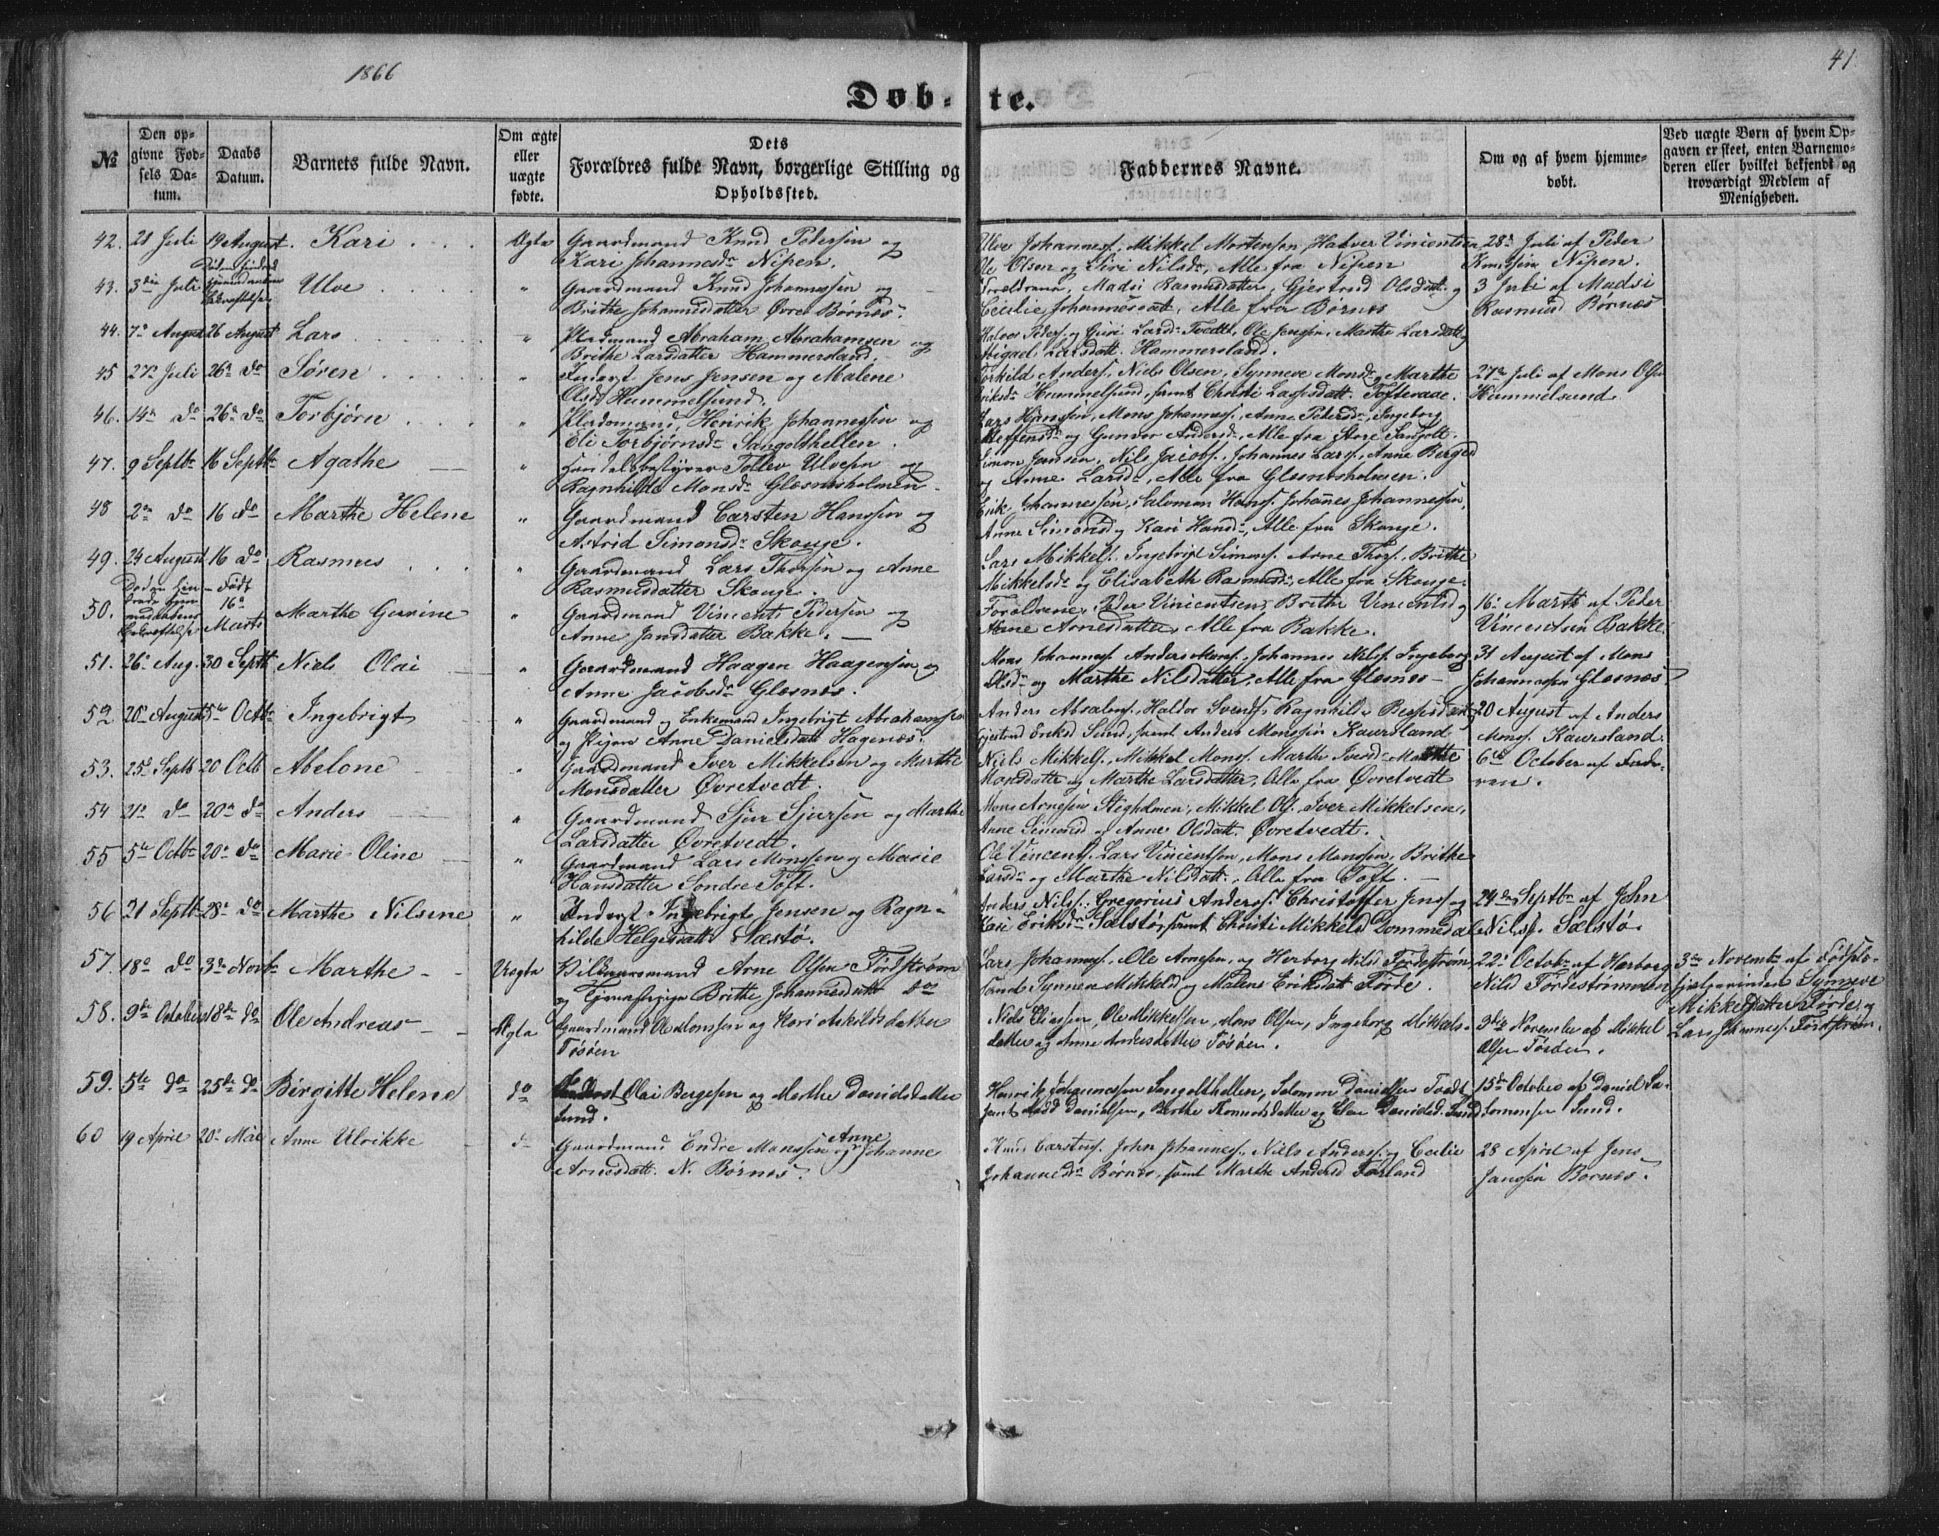 1866
41
Døb-te.
№
Den opgivne Fødsels Datum.
Daabs Datum.
Barnets fulde Navn.
Om ægte eller uægte fødte.
Dets Forældres fulde Navn, borgerlige Stilling og Opholdssted.
Faddernes Navne.
Om og af hvem hjemmedøbt.
Ved uægte Børn af hvem Opgaven er skeet, enten Barnemoderen eller hvilket bekjendt og troværdigt Medlem af Menigheden.
42. 21 Juli 19 August. Kari Ægte Gaardmand Knud Pedersen og
Kari Johannesdr Nipen.
Ulve Johannes, Mikkel Mortensen Halver Vincentsen
Ole Olsen og Siri Nilsdr, Alle fra Nipen
28de Juli af Peder
Knudsen Nipen.
43. 3die Juli Ulve Gaardmand Knud Johannessen og
Brithe Johannesdatter Øvre Børnes.
Forældrene, Madsi Rasmusdatter, Gjertrud Olsdatt. og
Cecilie Johannesdatt, Alle fra Børnes
3 Juli af Madsi
Rasmusd Børnes
44. 7de August 26 August Lars " Pladsmand Abraham Abrahamsen og
Brithe Larsdatter Hammersland.
Halvor Peders. og Guri Larsdr Tvedt, Ole Jensen, Marthe Larsdatt og
Abigael Larsdatt. Hammersland.
45 27de Juli 26de do Søren " Inderst Jens Jensen og Malene
Olsdr Hummelsund.
Torkild Anders., Niels Olsen, Synneve Monsdr Marthe
Eriksdr Hummelsund, samt Christi Larsdatt. Toftevaae.
27de Juli af Mons Olsen
Hummelsund
46. 14de do 26de do Torbjørn " Pladsmand Henrik Johannessen og
Eli Torbjørnsdr Sangolthellen.
Lars Hanssen, Mons Johannes., Anne Pedersdr, Ingeborg
Steffensdr og Gunvor Andersdr, Alle fra Store Sangolt.
47. 9 Septbr 16 Septbr Agathe " Handelsbestyrer Tollev Ulvesen og
Ragnhilde Monsdr Glesnesholmen
Simon Jansen, Nils Jacobs., Johannes Lars., Anne Berged
og Anne Larsdr, Alle fra Glesnesholmen.
48 2den do 16 do Marthe Helene " Gaardmand Carsten Hanssen og
Astrid Simonsdr Skauge.
Erik Johannessen, Salomon Hans. Johanes Johannessen,
Anne Simonsd og Kari Hansdr, Alle fra Skauge.
49. 24 August 16 do Rasmus " Gaardmand Lars Thorsen og Anne
Rasmusdatter Skauge.
Lars Mikkels. Ingebrigt Simons. Arne Thors. Brithe
Mikkelsdr og Elisabeth Rasmusdr, Alle fra Skauge.
50. Født 16de Marts Marthe Gurine " Gaardmand Vincents Pedersen og
Anne Jansdatter Bakke.
Forældrene, Peder Vincentsen, Brithe Vincentsd og
Anne Arnesdatter, Alle fra Bakke.
16de Marth af Peder
Vincentsen Bakke.
51. 26de Aug. 30 Septbr Niels Olai " Gaardmand Haagen Haagensen og
Anne Jacobsdr Glesnes.
Mons Johannes. Anders Mons. Johannes Nils. Ingeborg
Olsdr og Marthe Nilsdatter, Alle fra Glesnes
31 August af Mons
Johannesen Glesnes
52 20de August 5te Octbr Ingebrigt " Gaardmand og Enkemand Ingebrigt Abrahamsen
og Pigen Anne Danielsdatt Hagenes.
Anders Absalons. Haldor Svends. Ragnhilde Bergesdatt.
Gjertrud Eriksd Sund, samt Anders Monssen Kaursland
20 August af Anders
Mons. Kaursland.
53. 25de Septb 20 Octb Abelone " Gaardmand Iver Mikkelsen og Marthe
Monsdatter Øvretvedt.
Niels Mikkels. Mikkel Mons. Marthe Iversd. Marthe
Monsdatter og Marthe Larsdatter, Alle fra Øvretvedt
6te October af Faderen.
54 21de do 20de do Anders " Gaardmand Sjur Sjursen og Marthe
Larsdatter Øvretvedt.
Mons Arnesen Stigholmen, Mikkel Ols. Iver Mikkelsen,
Anne Simonsd og Anne Olsdatt. Øvretvedt.
55 5te Octbr 20de do Marie Oline " Gaardmand Lars Monssen og Marie
Hansdatter Søndre Toft.
Ole Vincents. Lars Vincentsen, Mons Monssen, Brithe
Larsdr og Marthe Nilsdatt., Alle fra Toft.
56 21 Septbr 28de do Marthe Nilsine " Inderst Ingebrigt Jensen og Ragnhilde Helgesdatt Sælstø.
Anders Nils., Gregorius Anders. Christoffer Jens. og
Kari Eriksdr Sælstø, samt Christi Mikkelsd Dommedal
24de Septbr af John
Nils. Sælstø.
57. 18de do 3de Novbr Marthe Uægte Arne Olsen Førdstrøm
og Brithe Johannesdatt do
Lars Johannes. Ole Arnesen, og Herborg Nilsd Førdestrøm
samt Synneve Mikkelsd og Malene Eriksdatt Førde.
22de Octobr af Herborg
Nilsd Førdestrømmen
3die Novembr af Fødselshjælperinden Synneve
Mikkelsdatter Førde og
Lars Johannes. Førdstrøm.
58. 9de October 18de do Ole Andreas Ægte Gaardmand Ole Monssen og Kari Askildsdatter
Tøsøen
Niels Eliassen, Ole Mikkelsen, Mons Olsen, Ingeborg Mikkelsdatter og Anne Andersdatter Tøsøen.
3die November af Mikkel
Olsen Tøsøen.
59. 5te do 25de do Birgitte Helene do Olai Bergesen og Marthe Danielsdatter
Sund.
Henrik Johannessen Sangolthellen, Salomon Danielsen Tvedt
samt Danielsen, Berthe Danielsd. Sund
15de October af Daniel Salomonsen Sund.
60 19 April 20de Mai Anne Ulrikke do Gaardmand Endre Monssen og Anne Johanne
Arnesdatt. N. Børnes.
Knud Carstens. John Johannes., Niels Anders. og Cecilie
Johannesdr Børnes, samt Marthe Andersd Forland
28 April af Jens
Jansen Børnes.